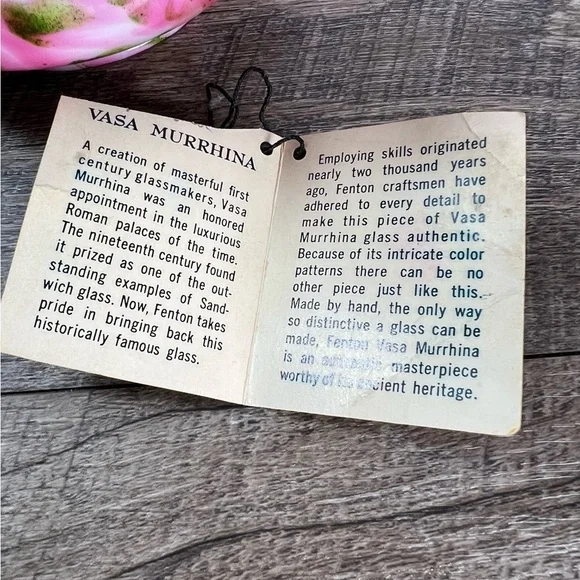 VASA MURRHINA
A creation of masterful first
century glassmakers, Vasa
Murrhina was an honored
appointment in the luxurious
Roman palaces of the time.
The nineteenth century found
it prized as one of the out-
standing examples of Sand-
wich glass. Now, Fenton takes
pride in bringing back this
historically famous glass.
Employing skills originated
nearly two thousand years
ago, Fenton craftsmen have
adhered to every detail to
make this piece of Vasa
Murrhina glass authentic.
Because of its intricate color
patterns there can be no
other piece just like this.
Made by hand, the only way
so distinctive a glass can be
made, Fenton Vasa Murrhina
is an authentic masterpiece
worthy of its ancient heritage.